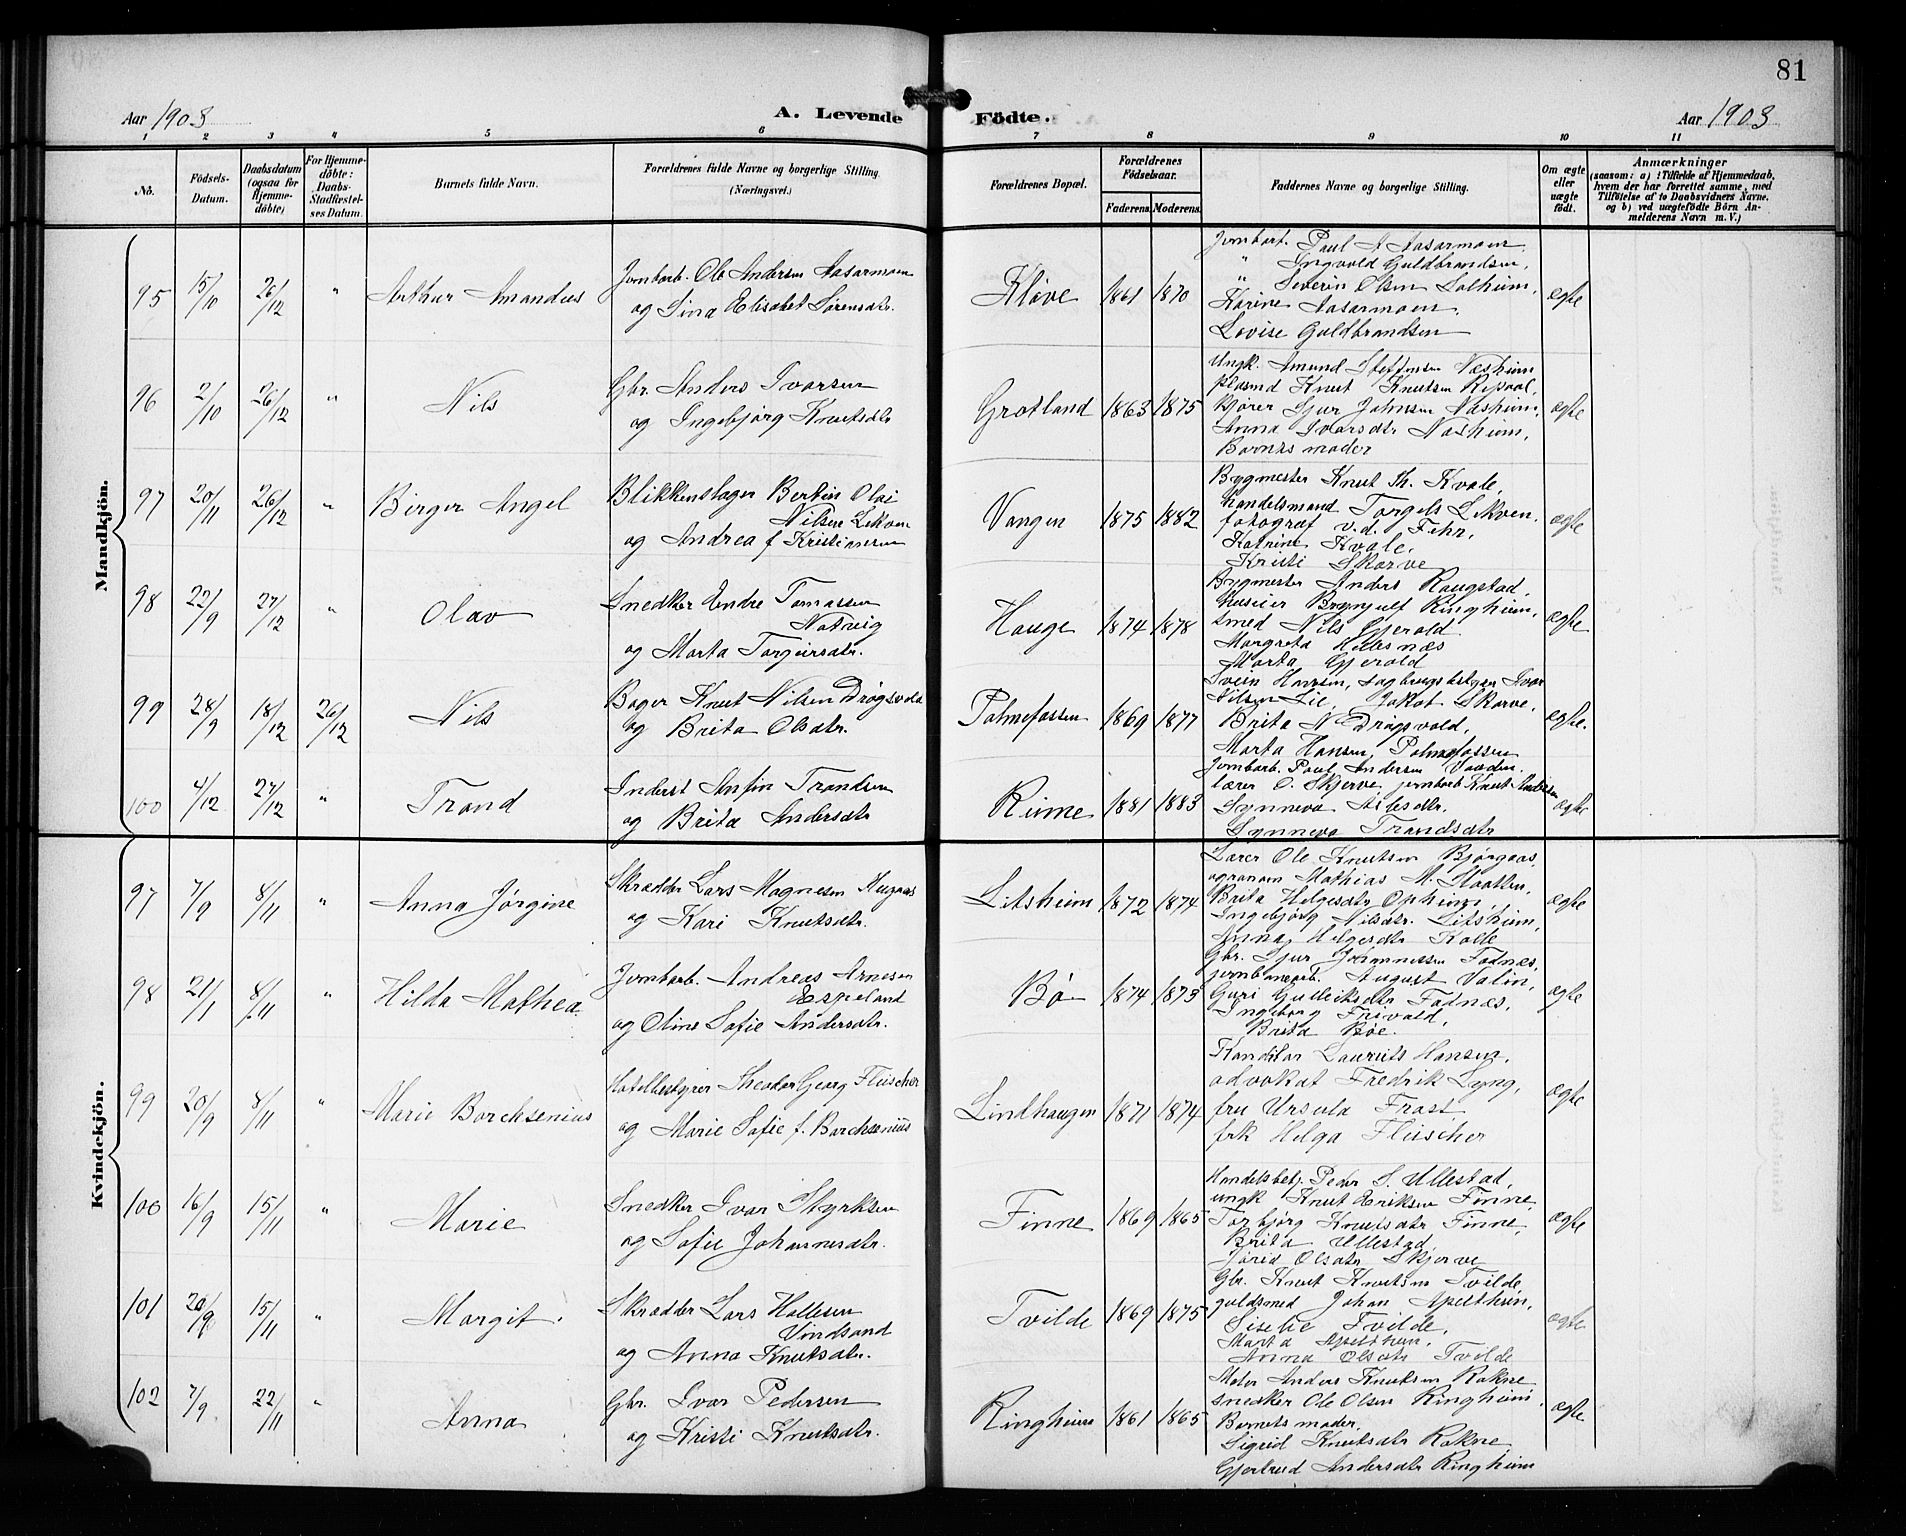 81
Aar 1903
A. Levende
Födte.
Aar 1903
1 2 3 4 5 6 7 8 9 10 11
No.
Födsels-
Datum.
Daabsdatum
(ogsaa for
Hjemme-
döbte)
For Hjemme-
döbte:
Daabs-
Stadfæstel-
ses Datum.
Barnets fulde Navn.
Forældrenes fulde Navne og borgerlige Stilling.
(Næringsvei.)
Forældrenes Bopæl.
Forældrenes
Födselsaar.
Faderens. Moderens.
Faddernes Navne og borgerlige Stilling.
Om ægte
eller
uægte
födt.
Anmærkninger
(saasom: a) i Tilfælde af Hjemmedaab,
hvem der har forrettet samme, med
Tilföielse af to Daabsvidners Navne,
og b) ved uægtefödte Börn An-
melderens Navn m. V.)
Mandkjön.
95 15/10 26/12 " Arthur Amandus
Jernbarb. Ole Andersen Aasarmoen
og Sina Elisabet Sørensdtr.
Kløve 1861 1870
Jernbarb. Paul A Aasarmoen
" Ingvald Guldbrandsen,
" Severin Olsen Solheim,
Karine Aasarmoen,
Lovise Guldbrandsen
ægte
96 2/10 26/12 " Nils
Gbr. Anders Ivarsen
og Ingebjørg Knutsdtr
Grotland 1863 1875
Ungk. Amund Steffensen Næsheim
Knut Knutsen Repaal,
Kjører Sjur Johnsen Næsheim,
Anna Ivarsdtr Næsheim,
Barnets moder
ægte
97 20/11 26/12 " Birger Angel
Blikkenslager Bertin Olai
Nilsen Lekven
og Andrea f. Kristiansen
Vangen 1875 1882
Bygmester Knut Th. Kvale,
handelsmand Torgels Lekven
fotograf v. d. Fehr,
Katrine Kvale,
Kristi Skorve
ægte
98 22/9 27/12 " Olav
Snedker Endre Tomassen
Natvig
og Marta Torgeirsdtr.
Hauge 1874 1878
Bygmester Anders Raugstad,
Brynjulf Ringheim,
smed Nils Gjerald
Margreta Helesnæs
Marta Gjerald
ægte
99 28/9 18/12 26/12 Nils
Bager Knut Nilsen Drøgsvold
og Brita Olsdtr.
Palmefossen 1869 1877
Svein Hansen, sagbrugsbestyrer Ivar
Nilsen Lie, Jakob Skorve,
Brita N Drøgsvold,
Marta Hansen, Palmefossen
ægte.
100 4/12 27/12 " Trond
Inderst Anfin Trondsen
og Brita Andersdtr
Rime 1881 1883
Jernbarb. Paul Andersen
lærer O. Skjerve, jernbarb Knut Andersen
Synneva Nilsdtr.
Synneva Trondsdtr
ægte
Kvindekjön.
97 7/9 8/11 " Anna Jørgine
Skrædder Lars Magnesen
og Kari Knutsdtr.
Litsheim 1872 1874
Lærer Ole Knutsen Bjørgaas,
agronom Mathias M.
Brita Helgesdtr Opheim,
Ingebjørg Nilsdtr. Litsheim,
Anna Helgesdtr Kolle
ægte
98 21/1 8/11 " Hilda Mathea
Jernbarb. Andreas Arnesen
Espeland
og Oline Sofie Andersdtr.
Bø 1874 1873
Gbr. Sjur Johannessen Fadnæs,
jernbanearb. August Valin,
Guri Gulleiksdtr Fadnæs,
Ingeborg
Brita Bøe.
ægte
99 20/9 8/11 " Marie Borchsenius
Hotelbestyrer Theodor Georg Fleischer
og Marie Sofie f. Borchsenius
Lindhaugen 1871 1874
Konditor Laurits Hansen,
advokat Fredrik Lyng,
fru Ursula Frost
frk Helga Fleischer
ægte
100 16/9 15/11 " Marie
Snedker Ivar Styrksen
og Sofie Johannesdtr.
Finne 1869 1865
Handelsbetj. Peder S. Ullestad,
ungk Knut Eriksen Finne,
Torbjørg Knutsdtr Finne,
Brita Ullestad
Jorid Olsdtr Skjerve
ægte
101 20/9 15/11 " Margit.
Skrædder Lars Hallesen
Vindsand
og Anna Knutsdtr.
Tvilde 1869 1875
Gbr. Knut Knutsen Tvilde,
guldsmed Johan Apelthun,
Siselie Tvilde,
Marta Apelthun,
Anna Olsdtr Tvilde
ægte
102 7/9 22/11 " Anna
Gbr. Ivar Pedersen
og Kristi Knutsdtr.
Ringheim 1861 1865
Maler Anders Knutsen Rokne
snedker Ole Olsen Ringheim
Barnets moder,
Sigrid Knutsdtr Rokne
Gjertrud Andersdtr Ringheim
ægte